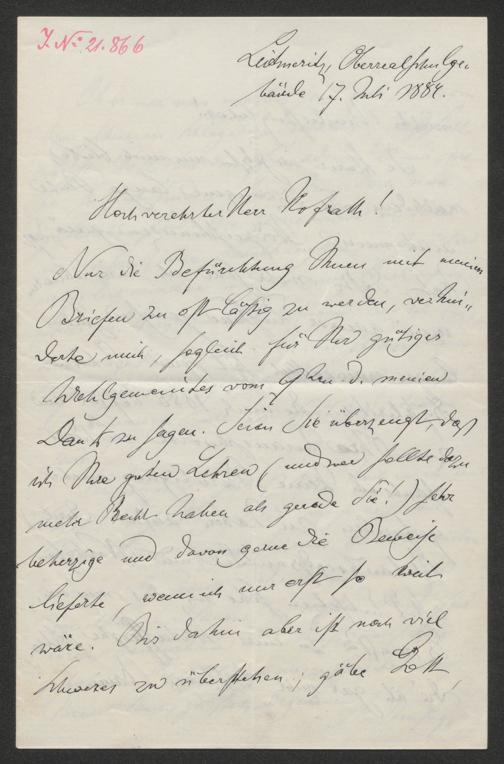 J. No 21.866
Leitmeritz, Oberrealschulge-
bäude 17. Juli 1884.
Hochverehrter Herr Hofrath!
Nur die Befürchtung Ihnen mit meinen
Briefen zu oft lästig zu werden, verhin-
derte mich, sogleich für Ihr gütiges
Wohlgemeintes vom 9ten d. meinen
Dank zu sagen. Seien Sie überzeugt, daß
ich Ihre guten Lehren (und wer sollte dazu
mehr Recht haben als gerade Sie!) sehr
beherzige und davon gerne die Beweise
lieferte, wenn ich nur erst so weit
wäre. Bis dahin aber ist noch viel
Schweres zu überstehen; gäbe Gott,